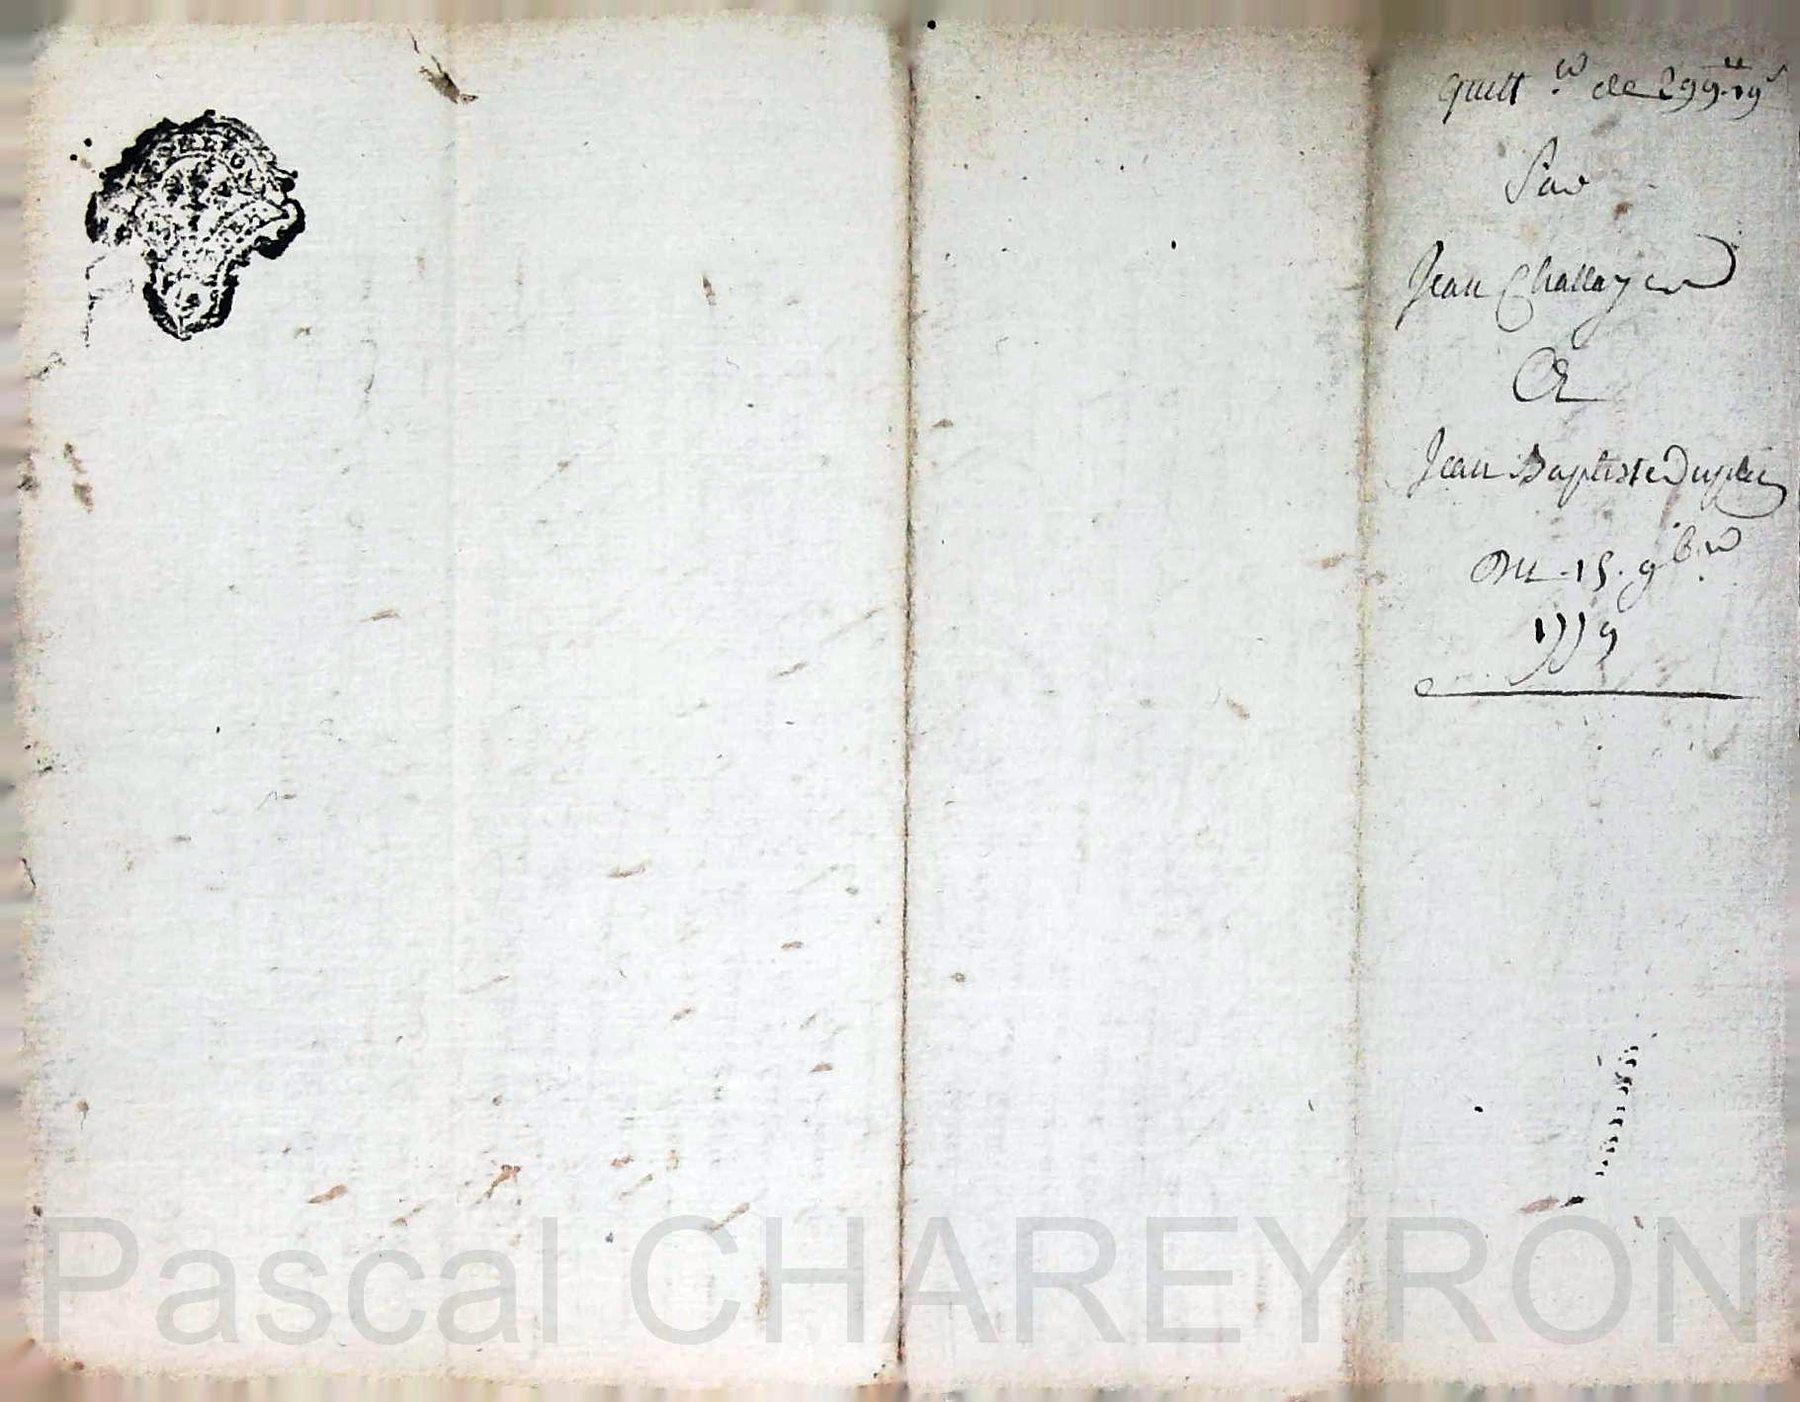 quitt.ce de 299ᵗᵗ 19ˢ
Par
Jean Challayer
A
Jean Baptiste Duplei
Du 15. 9b.re
1779
Pascal CHAREYRON